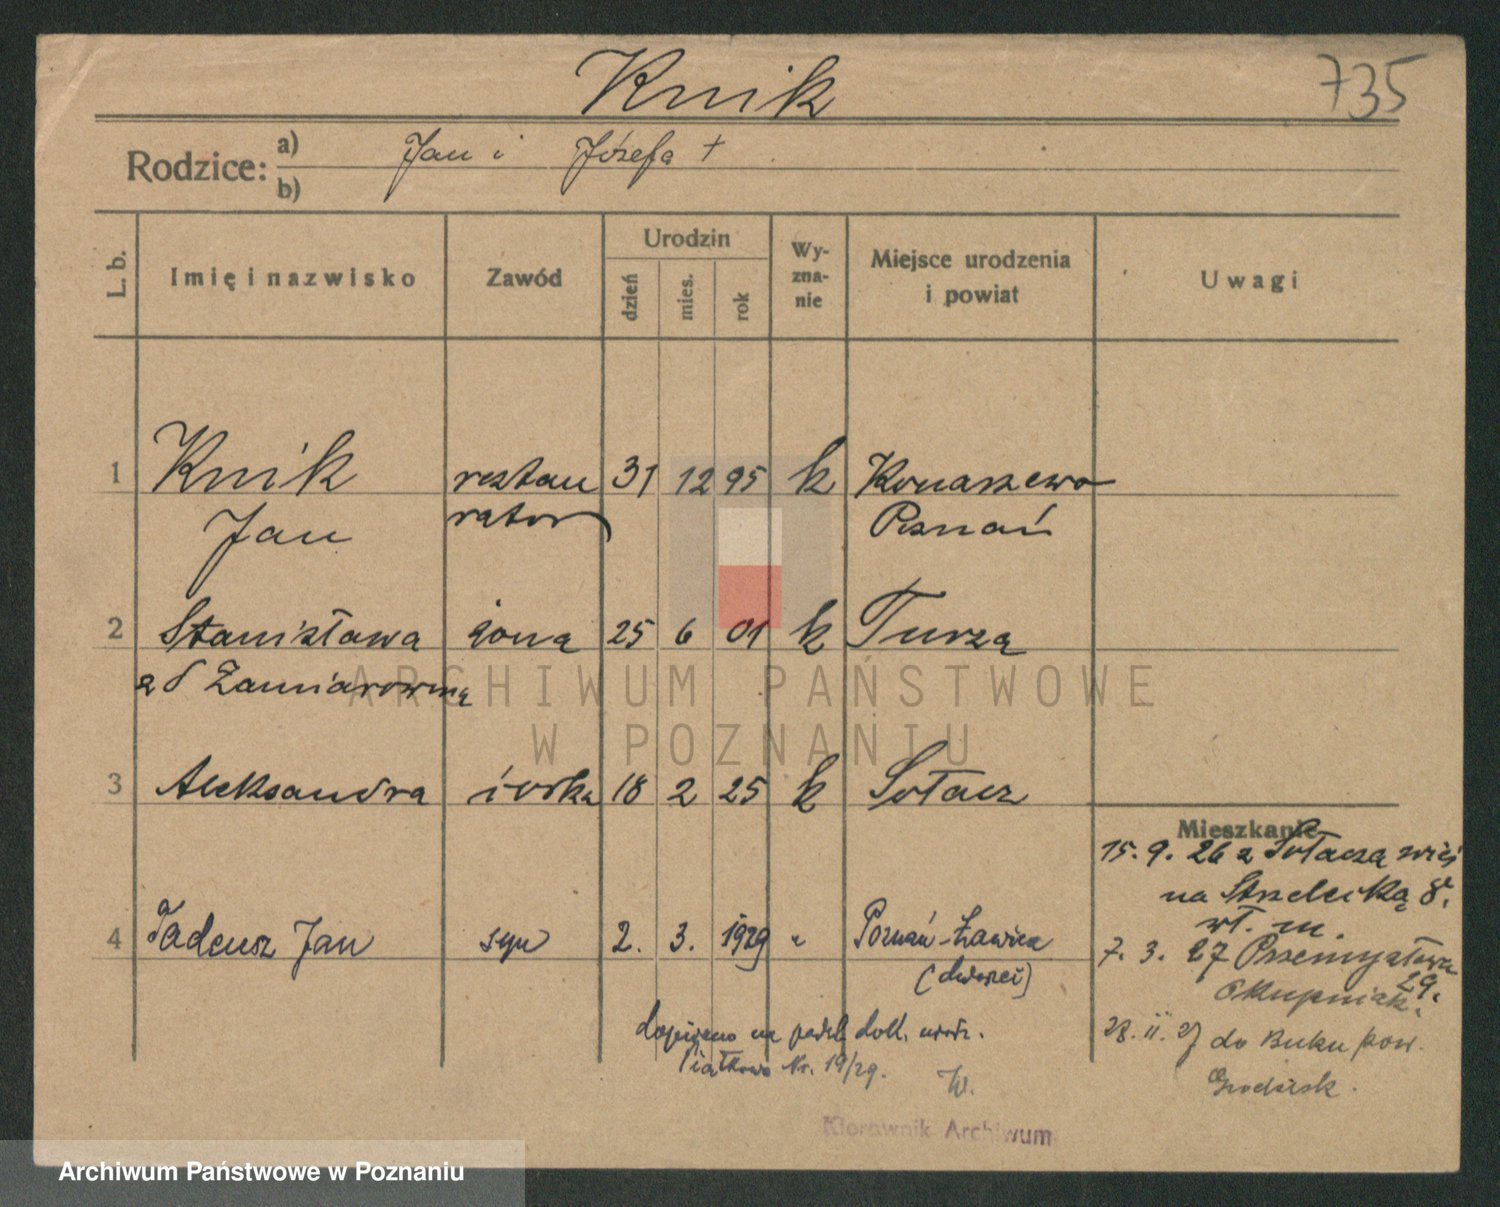 Knik 735
Rodzice: a) Jan i Józefa +
b)
L. b. Imię i nazwisko Zawód Urodzin dzień mies. rok Wy-zna-nie Miejsce urodzenia i powiat Uwagi
1 Knik restau 31 12 95 k Konarzewo
Jan rator Poznań
2 Stanisława żona 25 6 01 k Turza
z d
3 Aleksandra córka 18 2 25 k Sołacz
Mieszkanie
15. 9. 26 z Sołacza wieś
na Strzelecką 8.
wł. m.
4 Tadeusz Jan syn 2. 3. 1929 " Poznań-Ławica
(dworzec)
7. 3. 27 Przemysłowa
29.
dopisano na podst. dok. urodz.
Piątkowo Nr. 19/29.
W.
28. II. 27 do Buku pow.
Grodzisk.
Kierownik Archiwum
ARCHIWUM PAŃSTWOWE
W POZNANIU
Archiwum Państwowe w Poznaniu